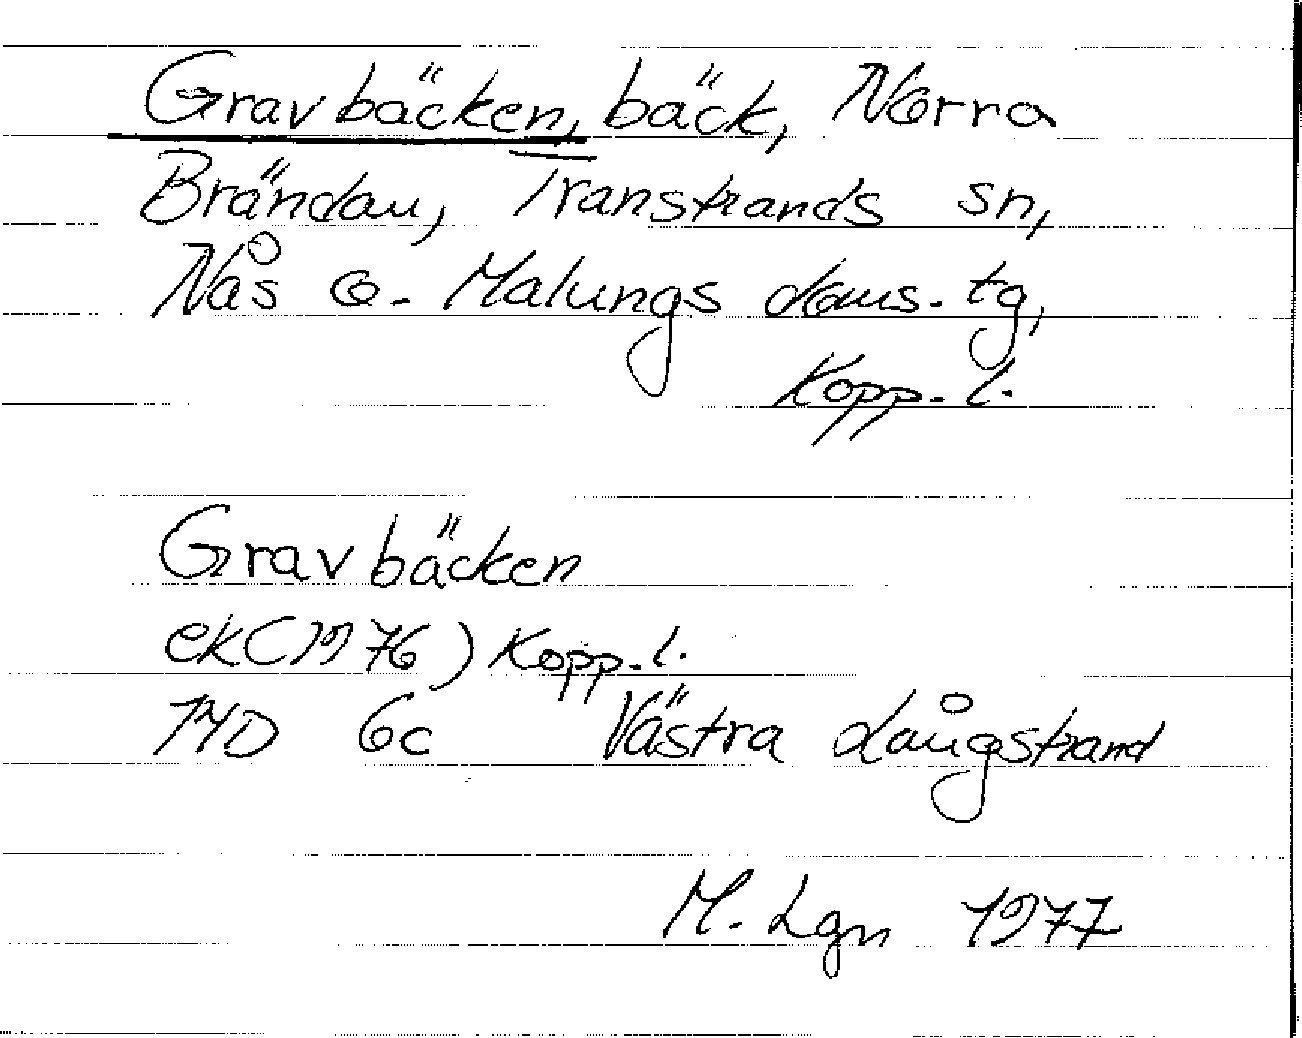 Gravbäcken, bäck, Norra
Brändan, Transtrands sn,
Nås o. Malungs doms. tg,
Kopp. l.
Gravbäcken
ek (1976) Kopp. l.
14D 6c Västra Långstrand
M. Lgn 1977